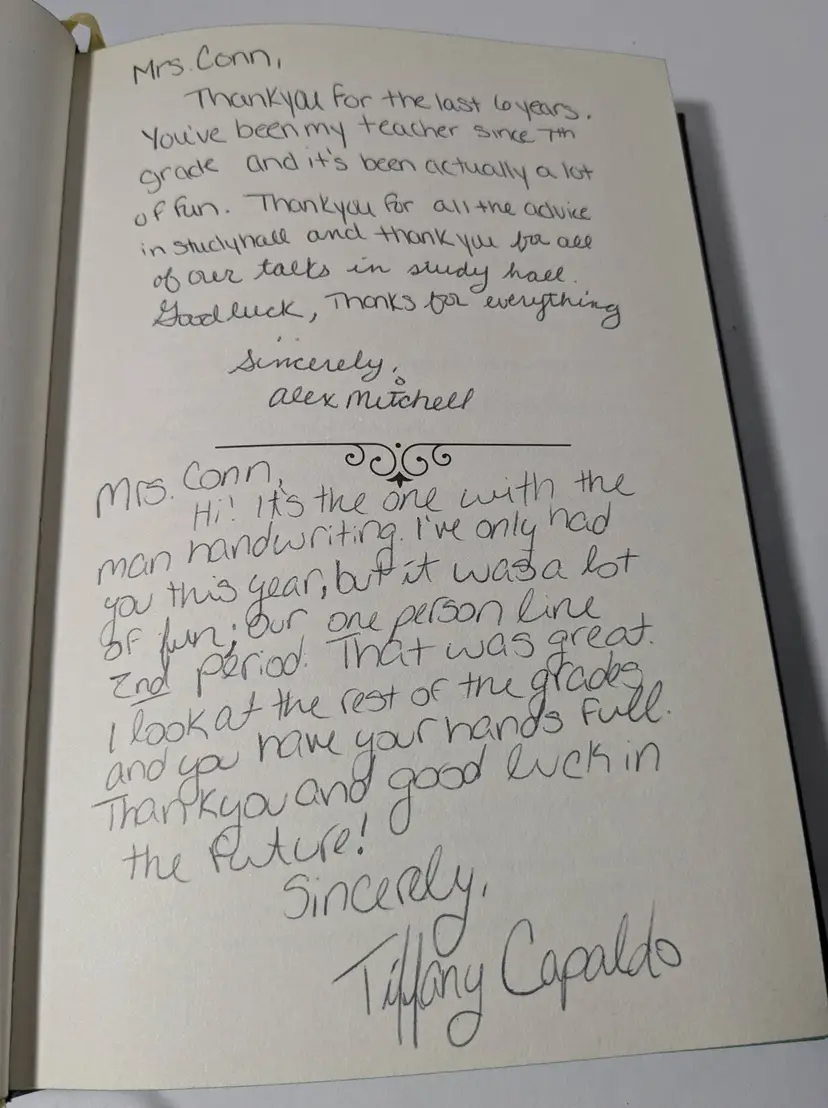 Mrs. Conn,
Thankyou for the last 6 years.
You've been my teacher since 7th
grade and it's been actually a lot
of fun. Thankyou for all the advice
in studyhall and thank you for all
of our talks in study hall.
Good luck, Thanks for everything
Sincerely,
Alex Mitchell
Mrs. Conn,
Hi! It's the one with the
man handwriting. I've only had
you this year, but it was a lot
of fun; Our one person line
2nd period. That was great.
I look at the rest of the grades
and you have your hands full.
Thankyou and good luck in
the future!
Sincerely,
Tiffany Capaldo